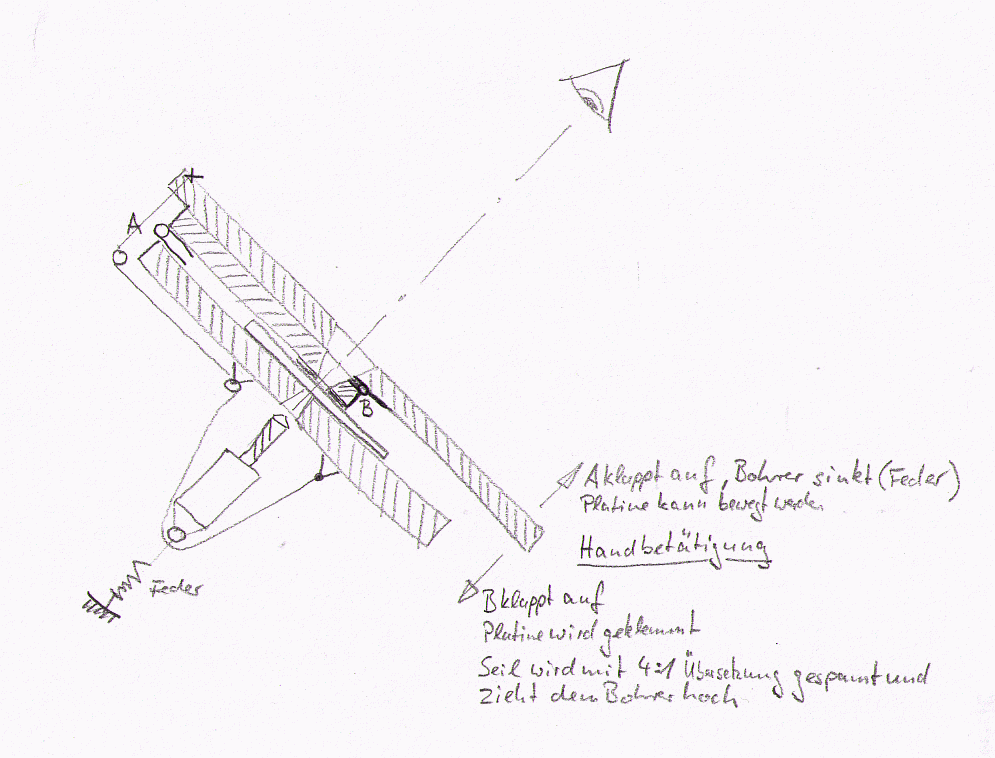 A
B
A kluppt auf, Bohrer sinkt (Feder)
Platine kann bewegt werden
Handbetätigung
Feder
B kluppt auf
Platine wird geklemmt
Seil wird mit 4:1 Übersetzung gespannt und
zieht den Bohrer hoch